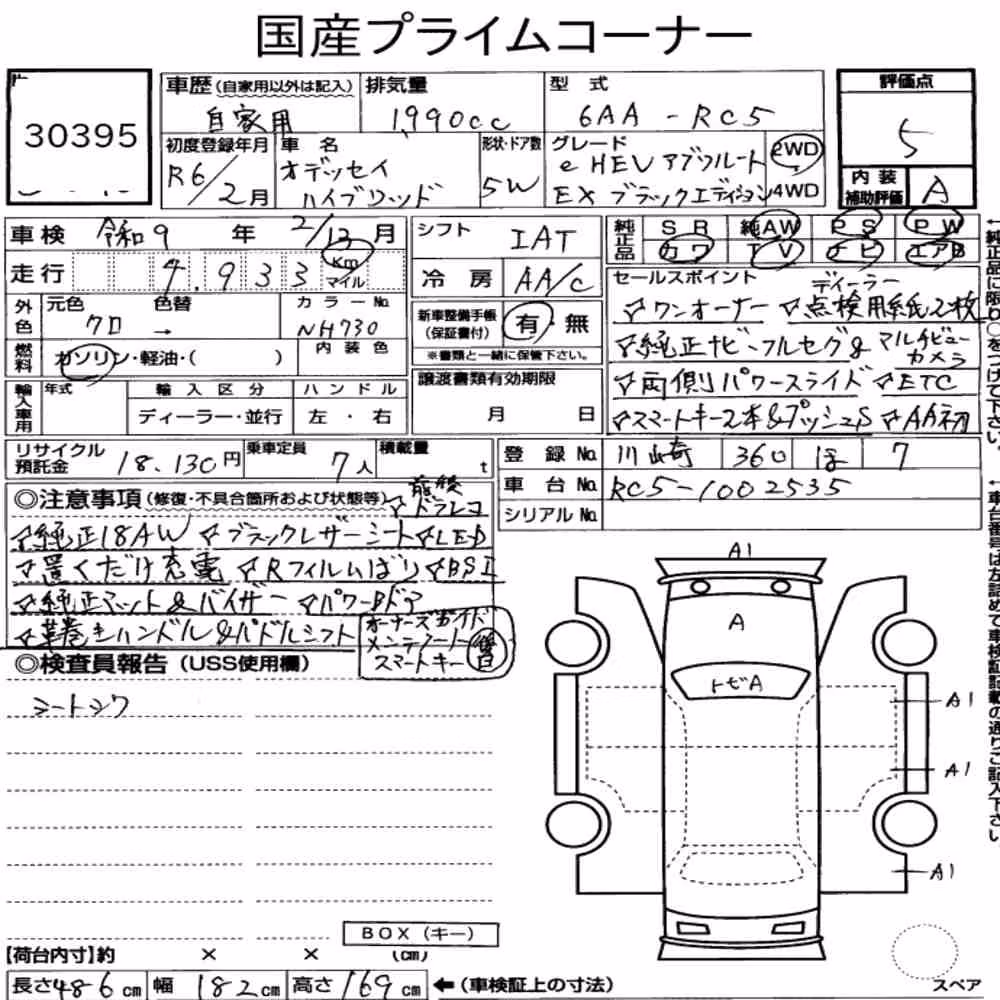 国産プライムコーナー
30395
車歴(自家用以外は記入) 自家用
排気量 1990cc
型式 6AA-RC5
評価点 5
内装補助評価 A
初度登録年月 R6/2月
車名 オデッセイ ハイブリッド
形状・ドア数 5W
グレード e HEV アブソルート EX ブラックエディション
2WD 4WD
車検 令和9年 2/13月
走行 4,933 Km マイル
シフト IAT
冷房 AA/C
純正品 SR 純AW PS PW
カワ TV ナビ エアB
外色 元色 クロ 色替 → カラーNo. NH730
内装色
燃料 ガソリン・軽油・( )
輸入車用 年式 輸入区分 ディーラー・並行 ハンドル 左・右
新車整備手帳(保証書付) 有・無
※書類と一緒に保管下さい。
譲渡書類有効期限 月 日
セールスポイント
☆ワンオーナー ☆ディーラー点検用紙2枚
☆純正ナビ・フルセグ&マルチビューカメラ
☆両側パワースライド ☆ETC
☆スマートキー2本&プッシュS ☆AA初
リサイクル預託金 18,130円
乗車定員 7人
積載量 t
登録No. 川崎 360 ほ 7
車台No. RC5-1002535
シリアルNo.
◎注意事項(修復・不具合箇所および状態等) ☆前後ドラレコ
☆純正18AW ☆ブラックレザーシート ☆LED
☆置くだけ充電 ☆Rフィルムばり ☆BSI
☆純正マット&バイザー ☆パワーBドア
☆革巻きハンドル&パドルシフト
オーナーズガイド
メンテノート
スマートキー 後日
◎検査員報告(USS使用欄)
シートシワ
A1
A
トビA
A1
A1
A1
BOX(キー)
【荷台内寸】約 × × (cm)
長さ486cm 幅182cm 高さ169cm ←(車検証上の寸法)
スペア
←純正品に限り○をつけて下さい。
←車台番号は左詰めで車検証記載の通りご記入下さい。